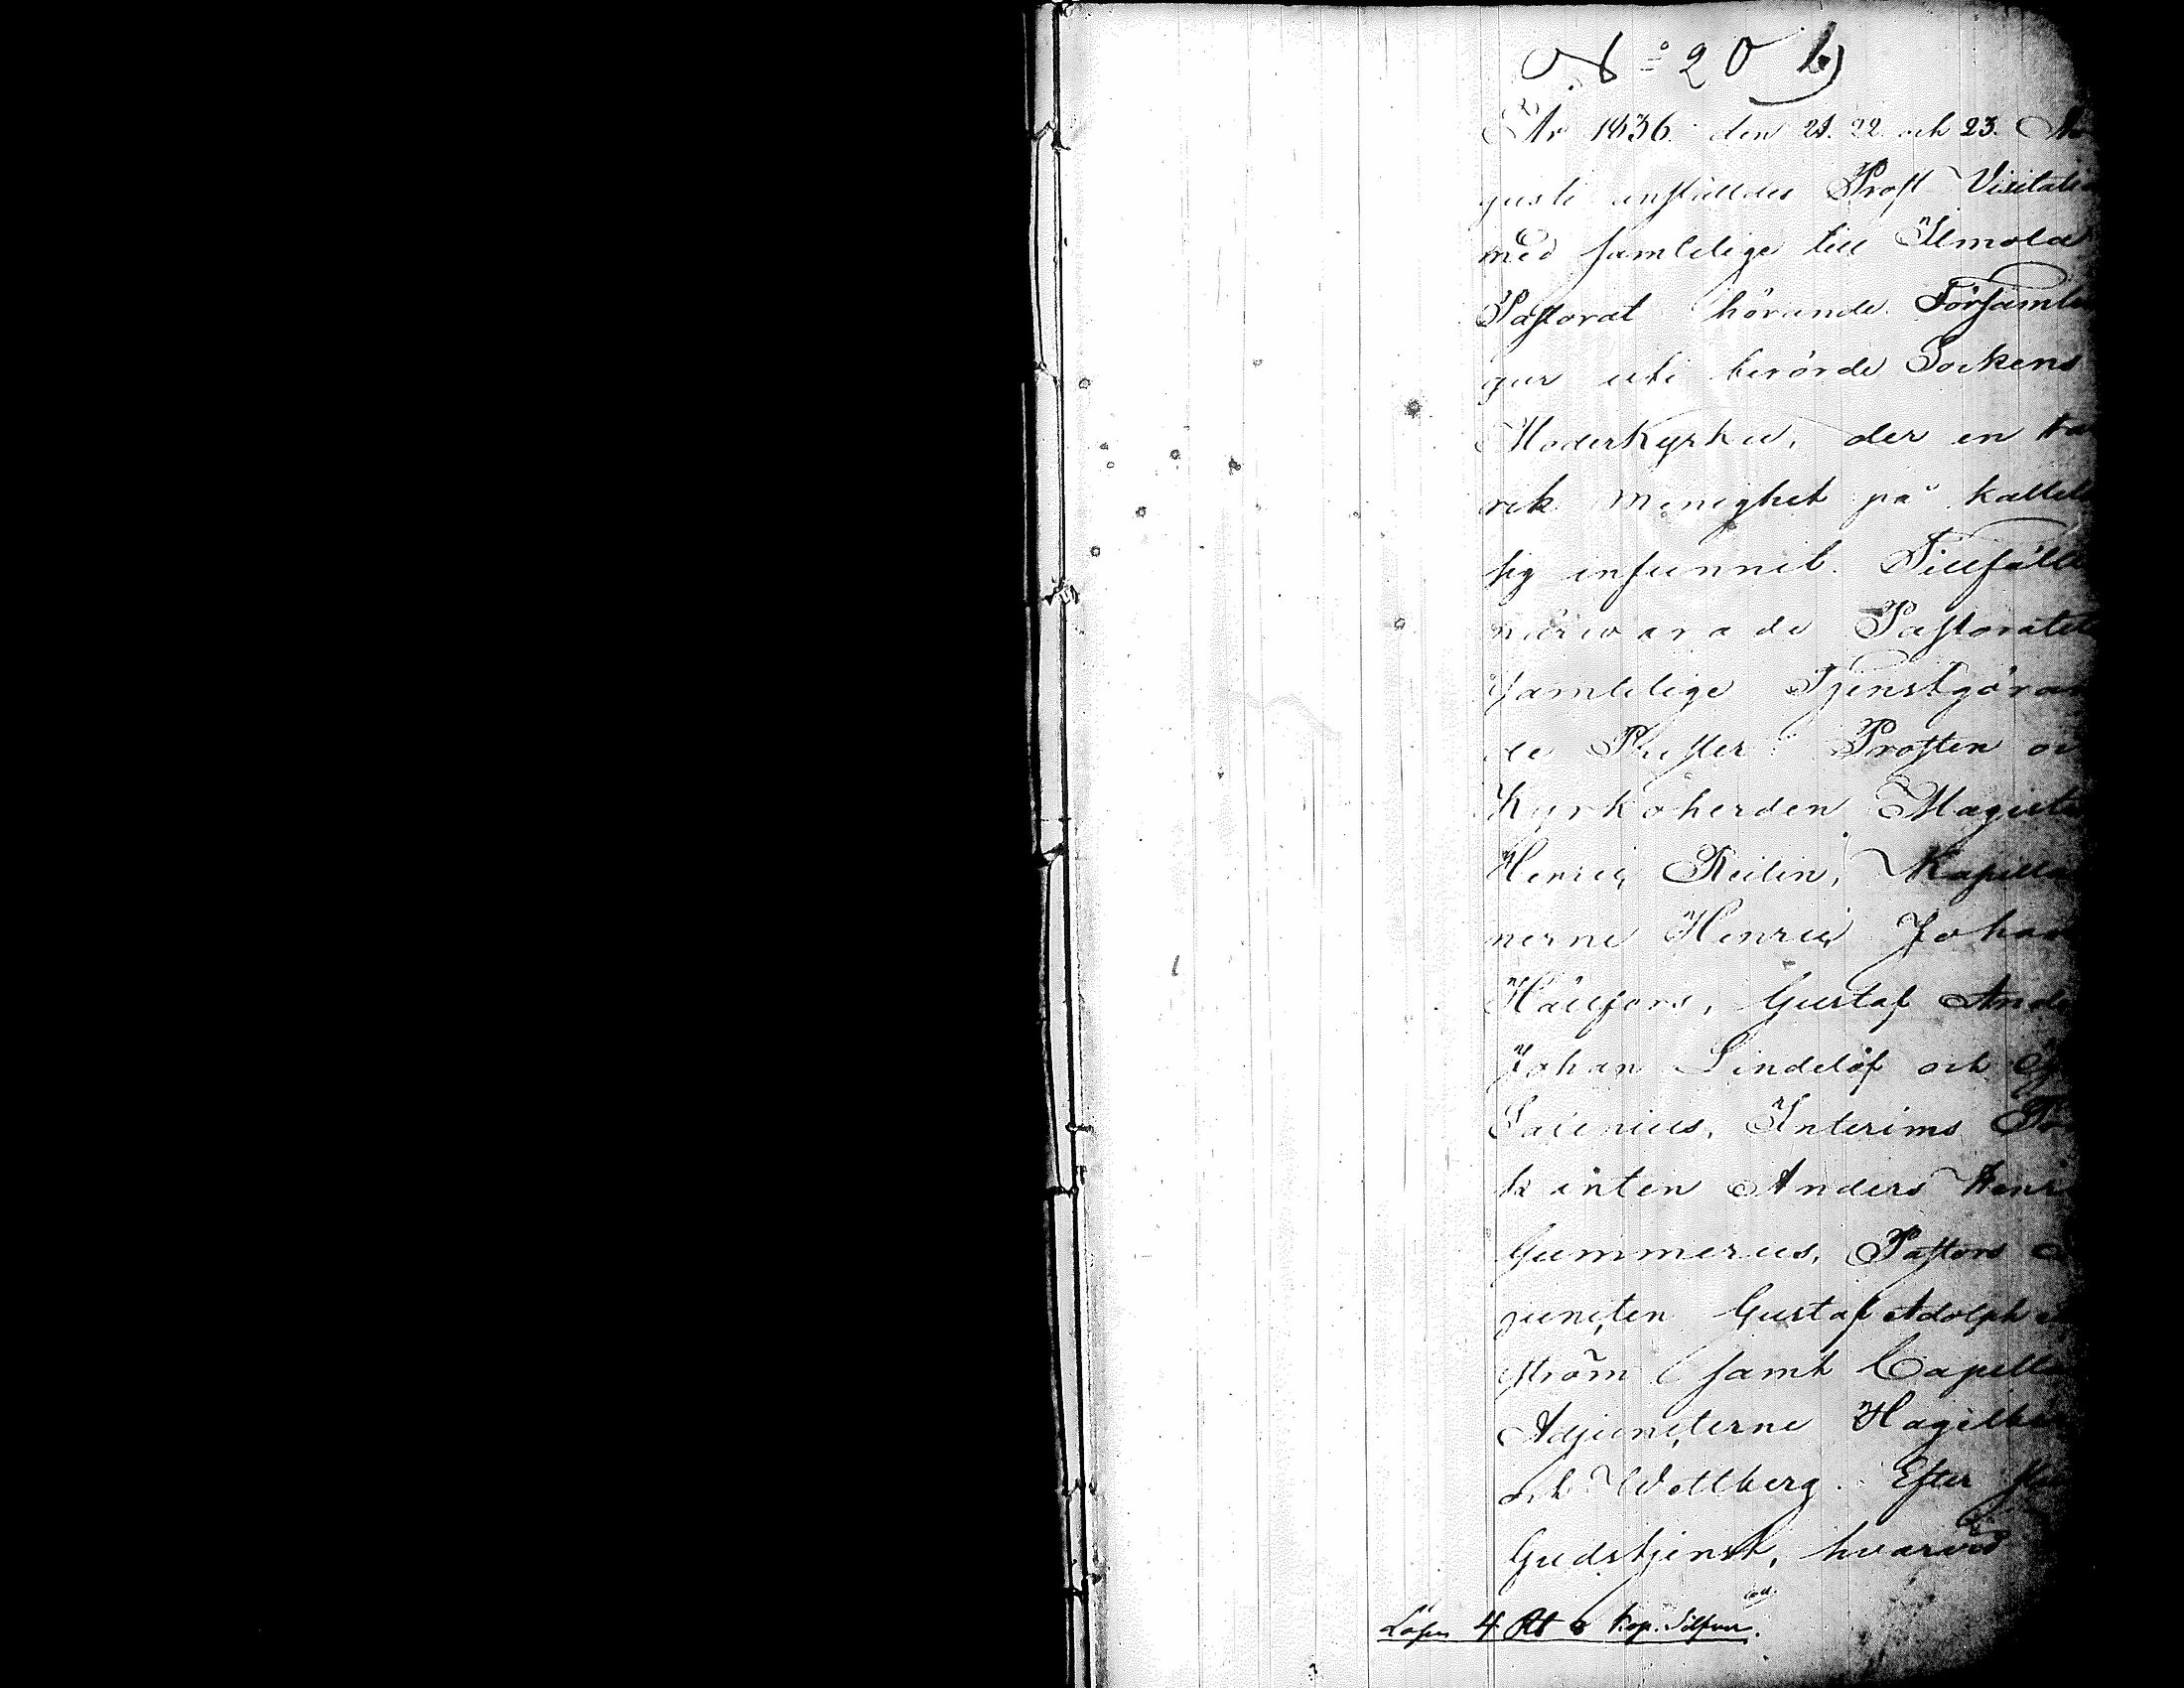 No 20 b)
År 1836 den 21. 22 och 23. Au
gusti anställdes Prost Visitatio
med samtelige till Ilmola
Pastorat hörande Församlin
gar uti berörde Sockens
Moderkyrka, der en tal
rik menighet på kallel
sig infunnit. Tillfälle
närwarade Pastoratet
samtelige Tjenstgöran
de Prester: Prosten oc
Kyrkoherden Magiste
Henric Heilin, Kapella
nerne Henric Johan
Hällfors, Gustaf Ande
Johan Lindelöf och
Salenius, Interims
Anders Henr
Gummerus, Pastors A
juncten Gustaf Adolph
ström samt Capella
Adjuncterne Hagelber
och Wollberg. Efter
Gudstjenst, hvarvid
Lösen 4 Rub Kop. Silfver.